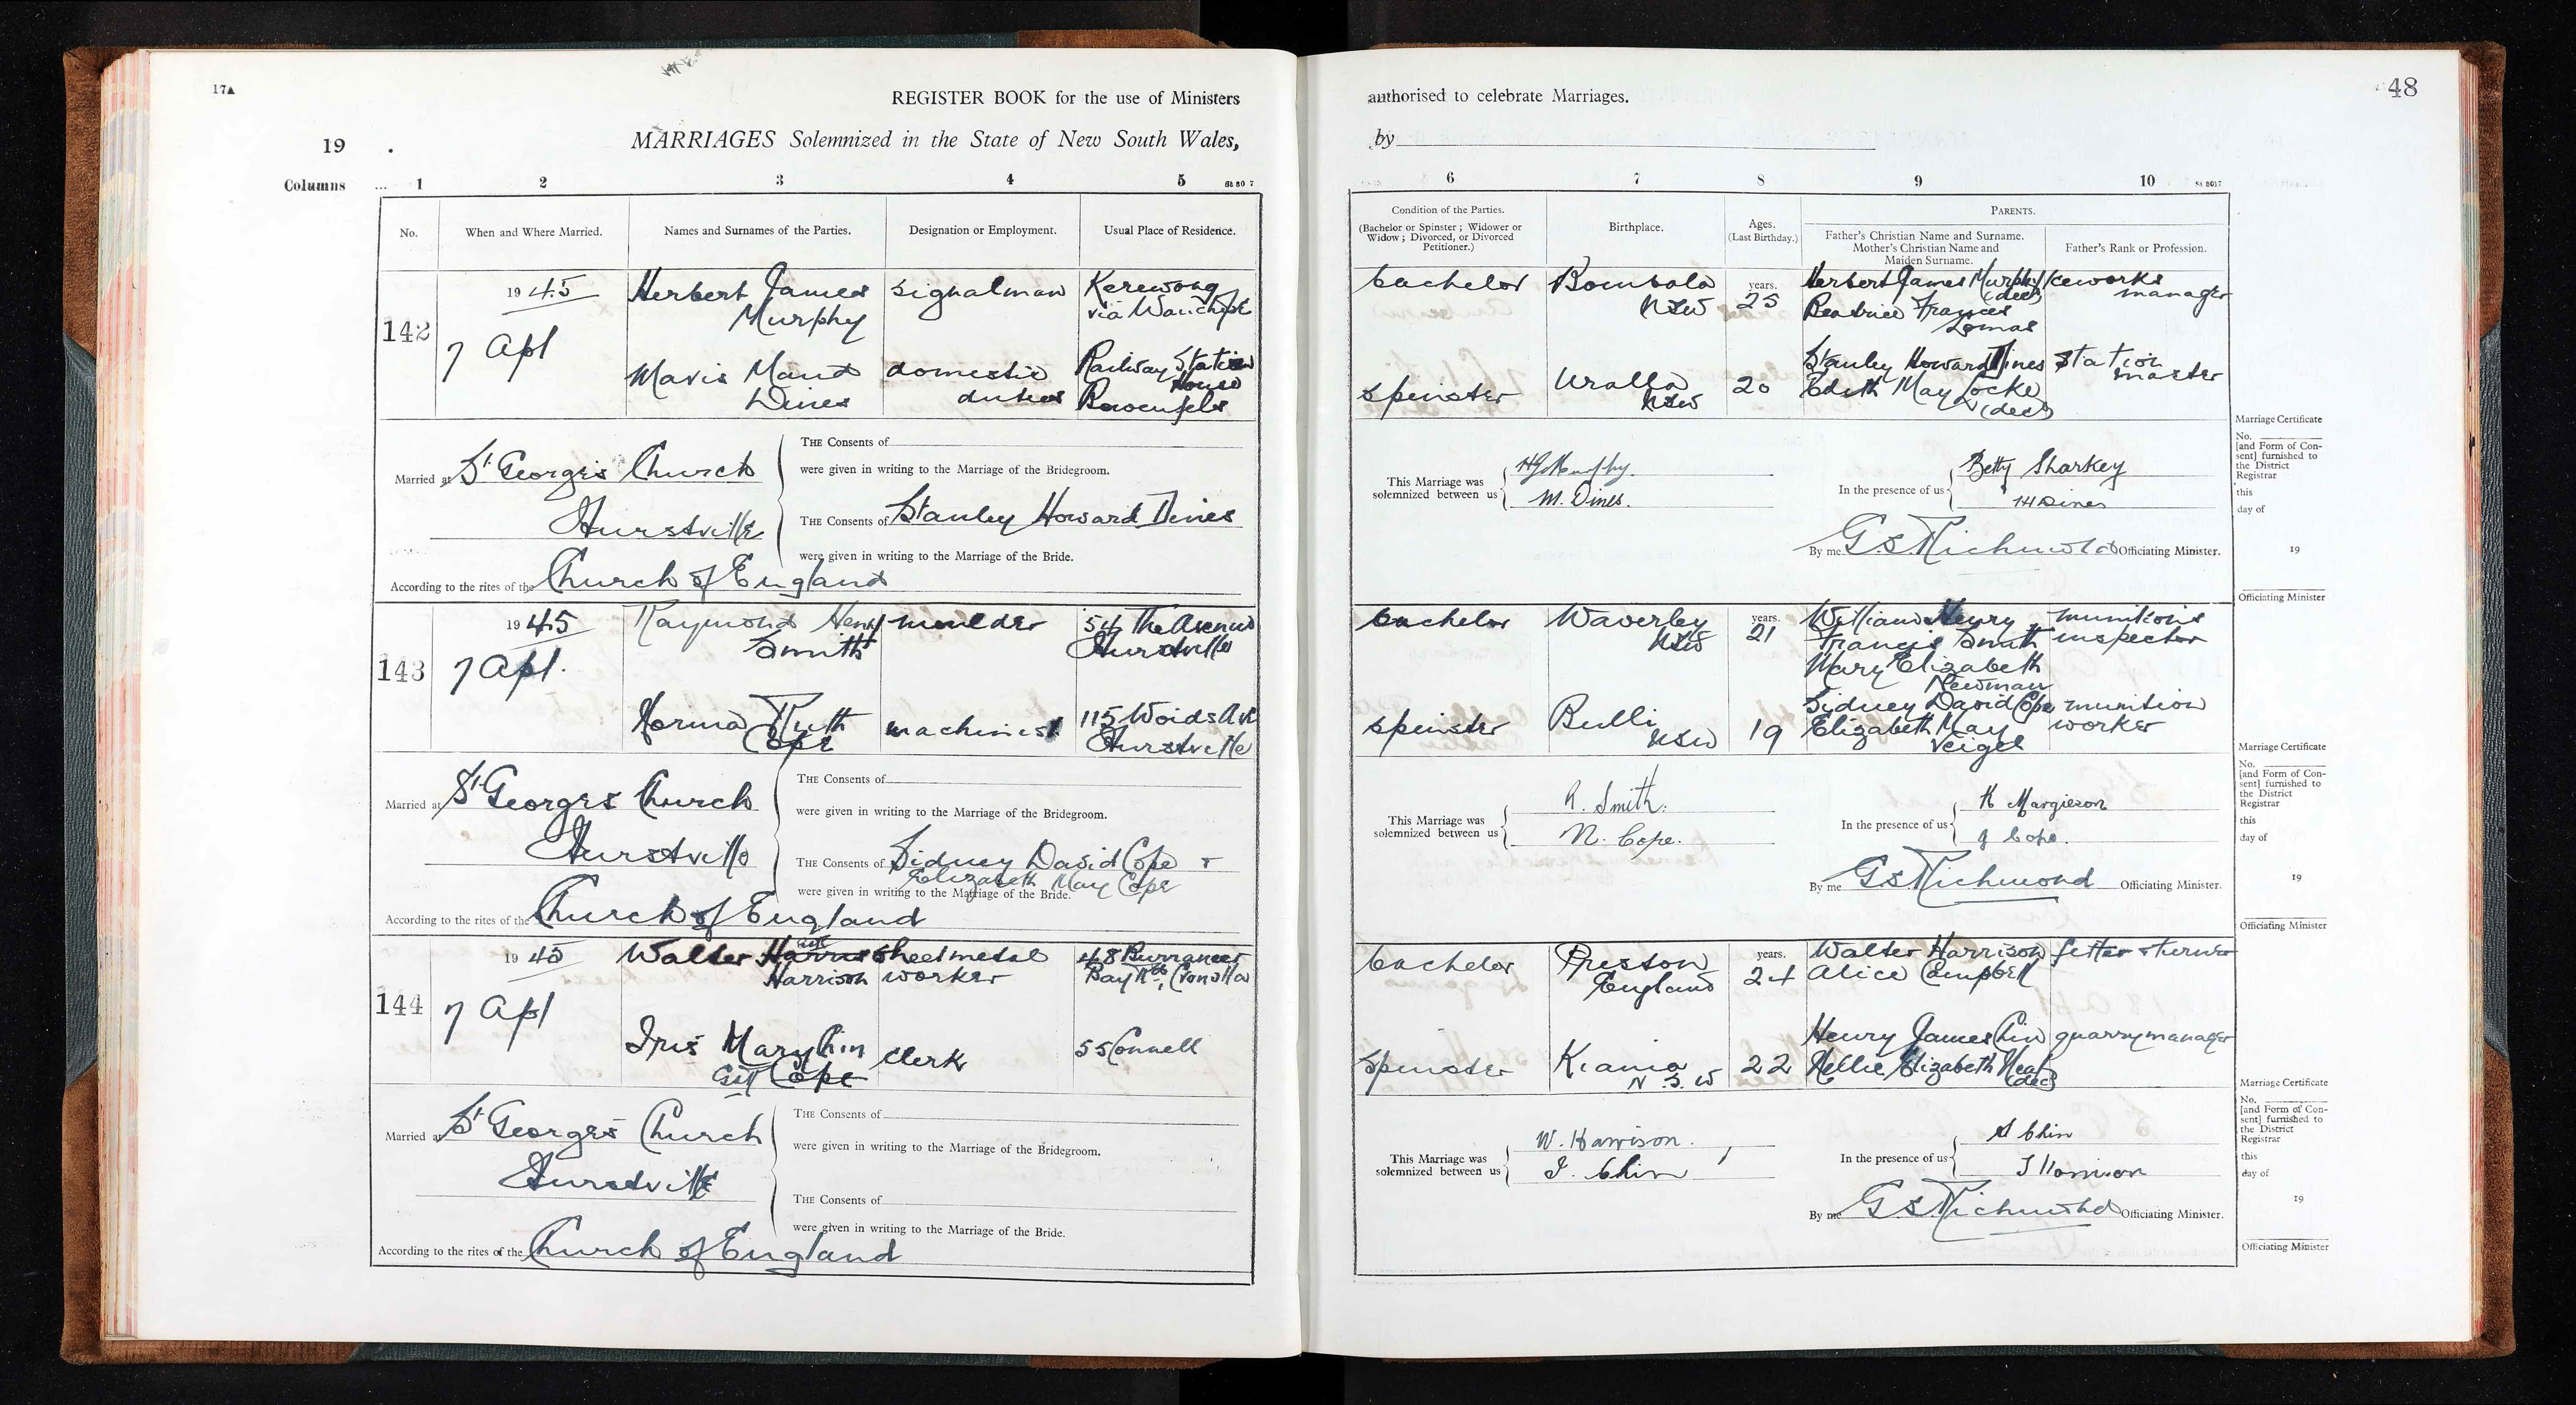 17A
REGISTER BOOK for the use of Ministers
MARRIAGES Solemnized in the State of New South Wales,
19 .
Columns ... 1 2 3 4 5
No. When and Where Married. Names and Surnames of the Parties. Designation or Employment. Usual Place of Residence.
142
1945
7 Apl
Herbert James
Murphy
signalman
Kerewong
via Wauchope
Mavis Maud
Dines
domestic
duties
Railway Station
House
Bowenfels
Married at St George's Church
Hurstville
According to the rites of the Church of England
THE Consents of
were given in writing to the Marriage of the Bridegroom.
THE Consents of Stanley Howard Dines
were given in writing to the Marriage of the Bride.
143
1945
7 Apl.
Raymond Henry
Smith
moulder
54 The Avenue
Hurstville
Norma Ruth
Cope
machinist
115 Woids Ave
Hurstville
Married at St George's Church
Hurstville
According to the rites of the Church of England
THE Consents of
were given in writing to the Marriage of the Bridegroom.
THE Consents of Sidney David Cope +
Elizabeth May Cope
were given in writing to the Marriage of the Bride.
144
1945
7 Apl
Walter
Harrison
sheetmetal
worker
48
Bay Rd,
Iris Mary Chin
Cope
clerk
55 Connell
Married at St George's Church
Hurstville
According to the rites of the Church of England
THE Consents of
were given in writing to the Marriage of the Bridegroom.
THE Consents of
were given in writing to the Marriage of the Bride.
authorised to celebrate Marriages.
48
by
6 7 8 9 10
Condition of the Parties.
(Bachelor or Spinster ; Widower or
Widow ; Divorced, or Divorced
Petitioner.)
Birthplace.
Ages.
(Last Birthday.)
PARENTS.
Father's Christian Name and Surname.
Mother's Christian Name and
Maiden Surname.
Father's Rank or Profession.
bachelor
Bombala
NSW
years.
25
Herbert James Murphy
(decd)
Beatrice Frances
Lomas
Iceworks
manager
spinster
Uralla
NSW
20
Stanley Howard Dines
Edith May Locke
(decd)
station
master
This Marriage was
solemnized between us
HJMurphy.
M. Dines.
In the presence of us
Betty Sharkey
Dines
By me GS Richmond Officiating Minister.
Marriage Certificate
No.
[and Form of Con-
sent] furnished to
the District
Registrar
this
day of
19
Officiating Minister
bachelor
Waverley
NSW
years.
21
William Henry
Francis Smith
Mary Elizabeth
Newman
munitions
inspector
spinster
Bulli
NSW
19
Sidney David Cope
Elizabeth May
Veigel
munition
worker
This Marriage was
solemnized between us
R. Smith.
N. Cope.
In the presence of us
K Margieson
J Cope.
By me GS Richmond Officiating Minister.
Marriage Certificate
No.
[and Form of Con-
sent] furnished to
the District
Registrar
this
day of
19
Officiating Minister
bachelor
Preston
England
years.
24
Walter Harrison
Alice Campbell
fitter & turner
spinster
Kiama
N.S.W
22
Henry James Chin
Nellie Elizabeth
(decd)
quarry manager
This Marriage was
solemnized between us
W. Harrison.
I. Chin
In the presence of us
Chin
Harrison
By me GS Richmond Officiating Minister.
Marriage Certificate
No.
[and Form of Con-
sent] furnished to
the District
Registrar
this
day of
19
Officiating Minister